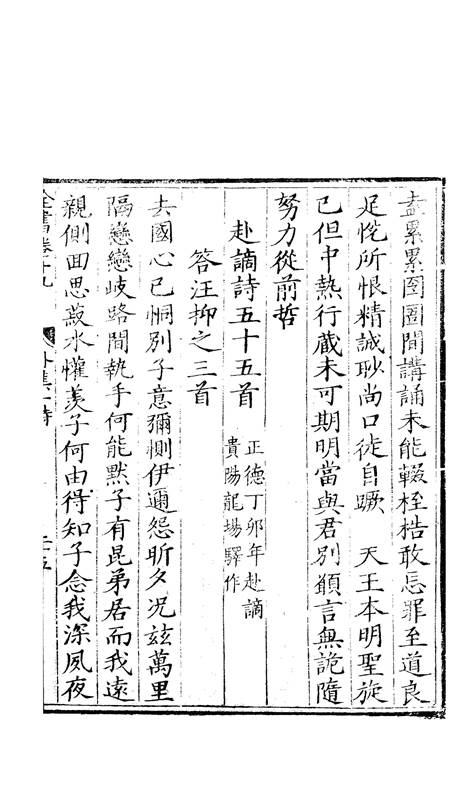 盍累累囹圄間講誦未能輟桎梏敢忘罪至道良
足悅所恨精誠眇尚口徒自蹶　天王本明聖旋
已但中熱行藏未可期明當與君別願言無詭隨
努力從前哲
赴謫詩五十五首
正德丁卯年赴謫
貴陽龍場驛作
答汪抑之三首
去國心已恫別子意彌惻伊邇怨昕夕況茲萬里
隔戀戀岐路間執手何能默子有昆弟居而我遠
親側囬思菽水懽羨子何由得知子念我深夙夜
全書卷十九　外集一詩